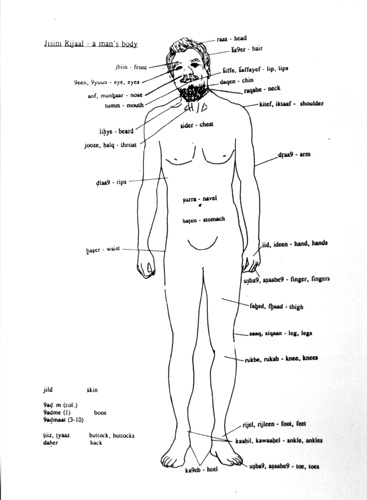 Jisim Rijaal - a man's body
raas - head
ša9er - hair
jbiin - front
9een, 9yuun - eye, eyes
šiffe, šaffayef - lip, lips
daqen - chin
anf, munḫaar - nose
raqabe - neck
tumm - mouth
kitef, iktaaf - shoulder
liḥye - beard
sider - chest
jooze, ḥalq - throat
ḍraa9 - arm
ḍlaa9 - rips
ṣurra - navel
baṭen - stomach
iid, ideen - hand, hands
ḫaṣer - waist
uṣba9, aṣaabe9 - finger, fingers
faḫed, fḫaad - thigh
saaq, siqaan - leg, legs
rukbe, rukab - knee, knees
jild skin
9aḍm (col.)
9aḍme (1) bone
9aḍmaat (3-10)
ṭiiz, ṭyaaz buttock, buttocks
ḍaher back
rijel, rijleen - foot, feet
kaahil, kawaahel - ankle, ankles
ka9eb - heel
uṣba9, aṣaabe9 - toe, toes